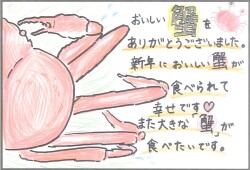 おいしい蟹を
ありがとうございました。
新年においしい蟹が
食べられて
幸せです♡
また大きな「蟹」が
食べたいです。